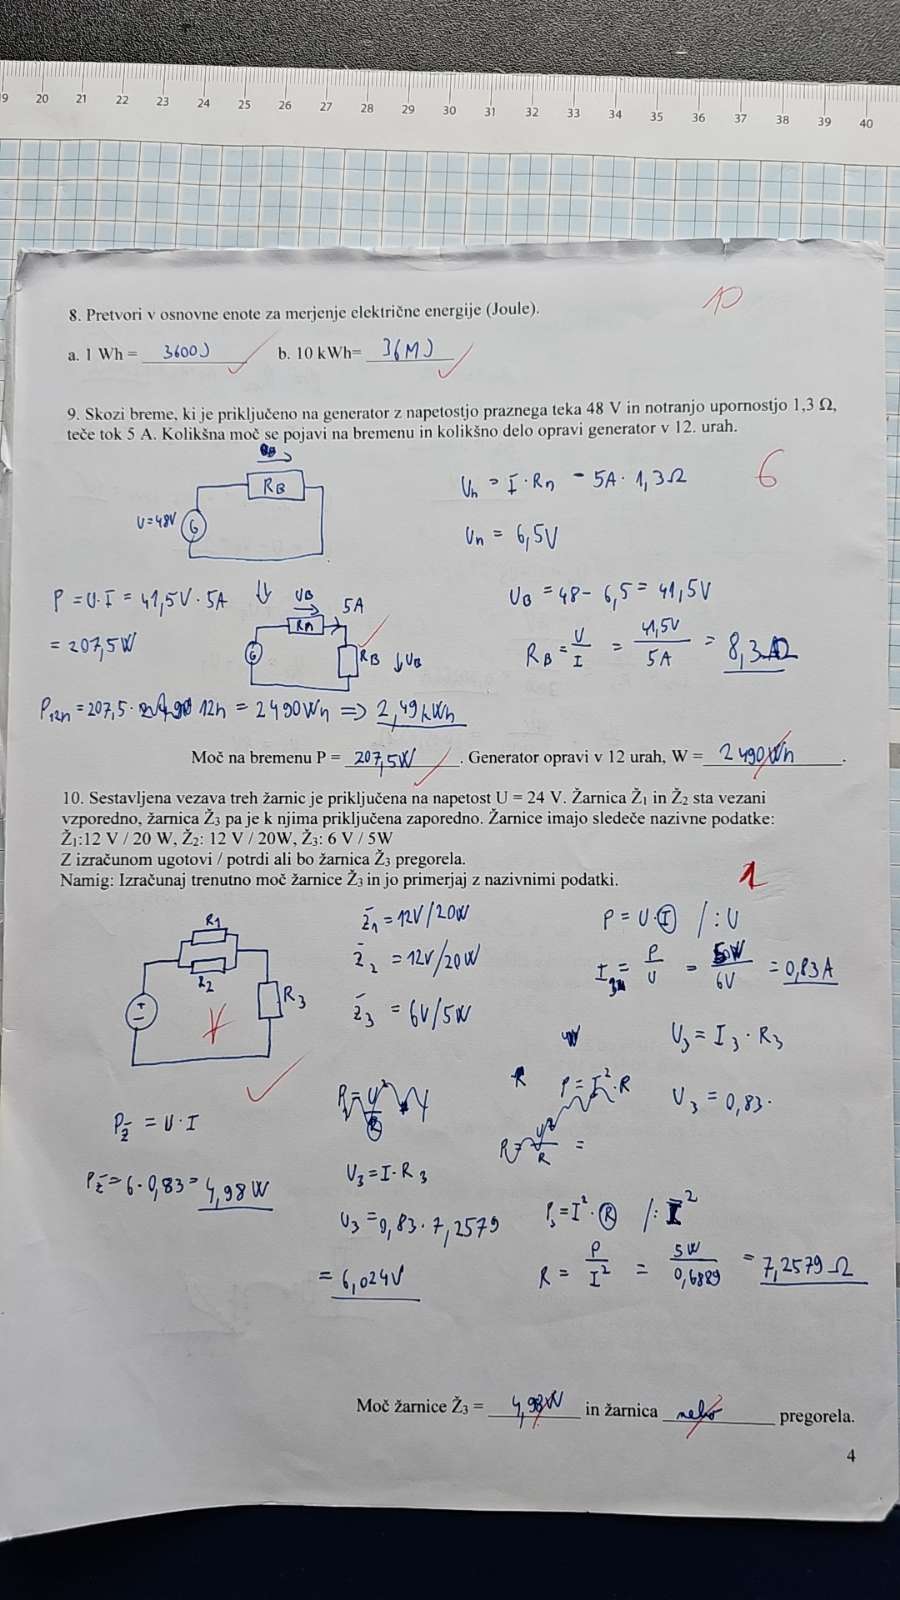 19 20 21 22 23 24 25 26 27 28 29 30 31 32 33 34 35 36 37 38 39 40
10
8. Pretvori v osnovne enote za merjenje električne energije (Joule).
a. 1 Wh = 3600J b. 10 kWh= 36MJ
9. Skozi breme, ki je priključeno na generator z napetostjo praznega teka 48 V in notranjo upornostjo 1,3 Ω,
teče tok 5 A. Kolikšna moč se pojavi na bremenu in kolikšno delo opravi generator v 12. urah.
6
RB
U=48V
G
Un = I · Rn = 5A · 1,3Ω
Un = 6,5V
UB = 48 - 6,5 = 41,5V
RB = U/I = 41,5V/5A = 8,3Ω
P = U·I = 41,5V · 5A
= 207,5W
UB
5A
Rn
G
RB
UB
P12h = 207,5 · 12h = 2490Wh => 2,49kWh
Moč na bremenu P = 207,5W. Generator opravi v 12 urah, W = 2490Wh.
10. Sestavljena vezava treh žarnic je priključena na napetost U = 24 V. Žarnica Ž1 in Ž2 sta vezani
vzporedno, žarnica Ž3 pa je k njima priključena zaporedno. Žarnice imajo sledeče nazivne podatke:
Ž1:12 V / 20 W, Ž2: 12 V / 20W, Ž3: 6 V / 5W
Z izračunom ugotovi / potrdi ali bo žarnica Ž3 pregorela.
Namig: Izračunaj trenutno moč žarnice Ž3 in jo primerjaj z nazivnimi podatki.
1
R1
R2
R3
Ž1 = 12V/20W
Ž2 = 12V/20W
Ž3 = 6V/5W
P = U·I /:U
I3n = P/U = 5W/6V = 0,83A
U3 = I3 · R3
U3 = 0,83·
P = I² · R
PŽ = U·I
PŽ = 6·0,83 = 4,98W
U3 = I·R3
U3 = 0,83 · 7,2579
= 6,024V
P3 = I² · R /:I²
R = P/I² = 5W/0,6889 = 7,2579Ω
Moč žarnice Ž3 = 4,98W in žarnica nebo pregorela.
4